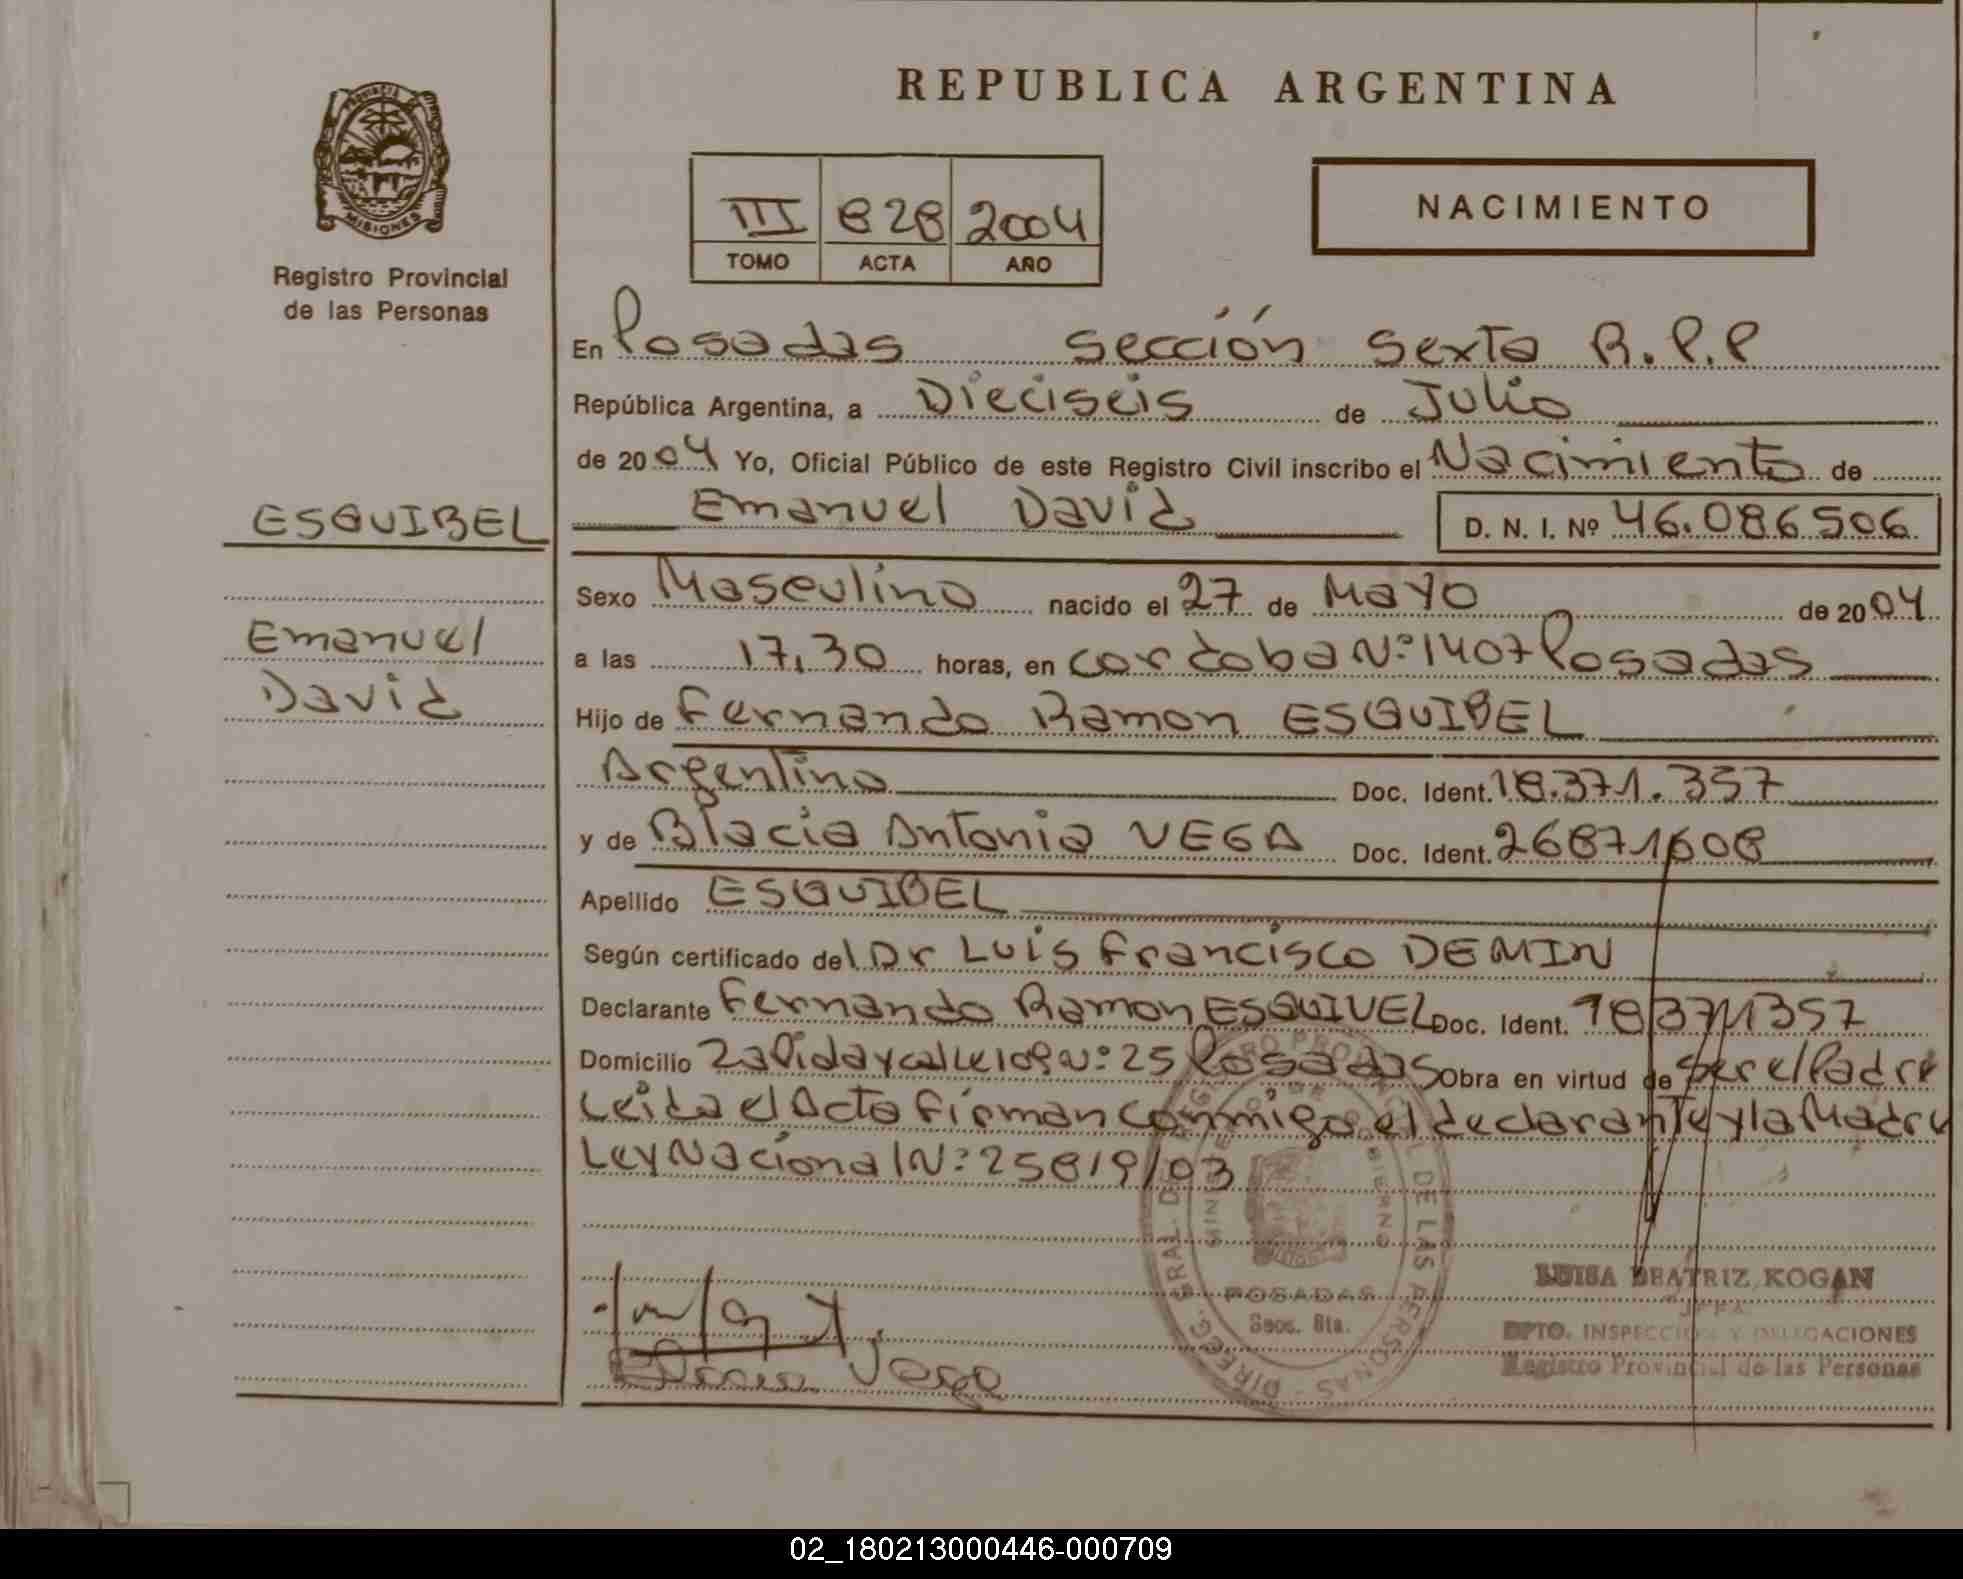 REPUBLICA ARGENTINA
PROVINCIA DE
MISIONES
Registro Provincial
de las Personas
III 828 2004
TOMO ACTA AÑO
NACIMIENTO
En Posadas sección Sexta R.P.P
República Argentina, a Dieciseis de Julio
de 2004 Yo, Oficial Público de este Registro Civil inscribo el Nacimiento de
Emanuel David D. N. I. Nº 46.086.506
ESQUIBEL
Emanuel
David
Sexo Masculino nacido el 27 de Mayo de 2004
a las 17,30 horas, en cordoba Nº 1407 Posadas
Hijo de Fernando Ramon ESQUIBEL
Argentino Doc. Ident. 18.371.357
y de Blacia Antonia VEGA Doc. Ident. 26871608
Apellido ESQUIBEL
Según certificado del Dr Luis Francisco DEMIN
Declarante Fernando Ramon ESQUIVEL Doc. Ident. 18371357
Domicilio Nº 25 Posadas Obra en virtud de Ser el Padre
Leida el Acta firman conmigo el declarante y la Madre
Ley Nacional Nº 25819/03
DIREC. GRAL. DEL REGISTRO PROVINCIAL DE LAS PERSONAS
MINISTERIO DE GOBIERNO
POSADAS
Secc. 6ta.
Vega
LUISA BEATRIZ KOGAN
JEFA
DPTO. INSPECCION Y DELEGACIONES
Registro Provincial de las Personas
02_180213000446-000709